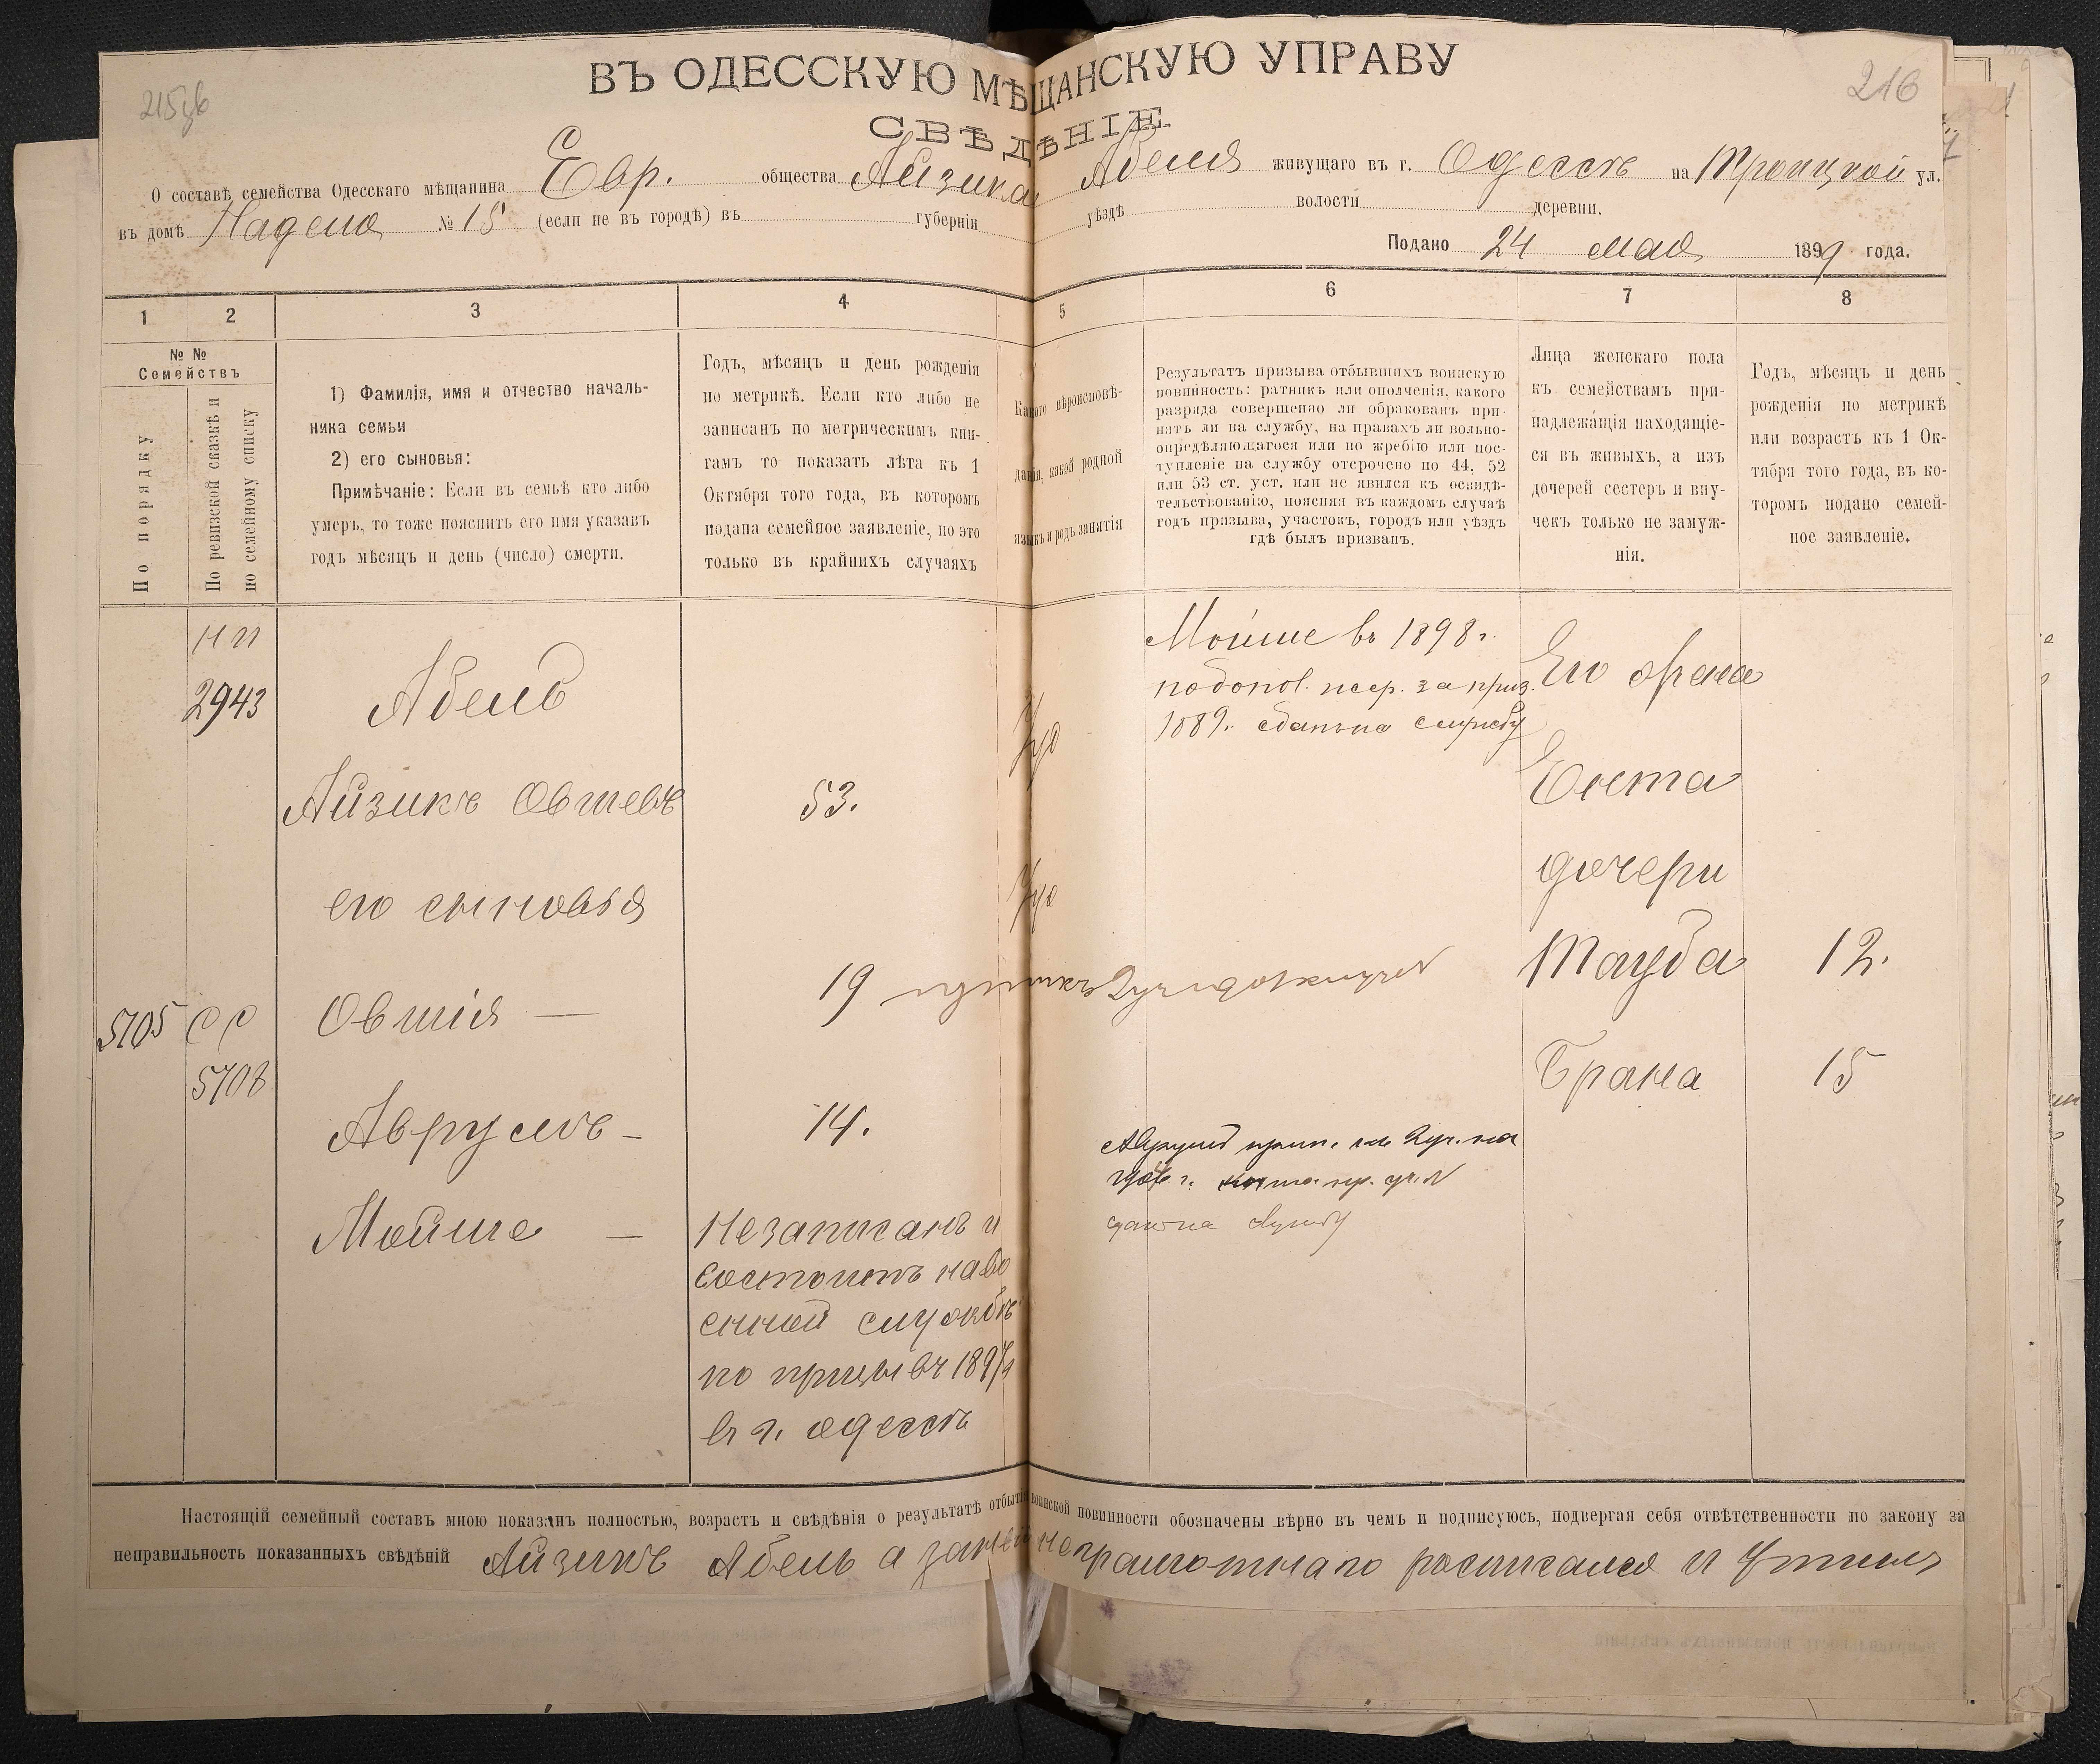 ВЪ ОДЕССКУЮ МѢЩАНСКУЮ УПРАВУ
216
СВѢДѢНІЕ
О составѣ семейства Одесскаго мѣщанина Евр. общества Айзика Абеля живущаго въ г. Одессѣ на Троицкой ул.
въ домѣ № 15 (если не въ городѣ) въ губерніи уѣздѣ волости деревни.
Подано 24 мая 1899 года.
1 2 3 4 5 6 7 8
№ №
Семействъ
По порядку
По ревизской сказкѣ и
по семейному списку
1) Фамилія, имя и отчество началь-
ника семьи
2) его сыновья:
Примѣчаніе: Если въ семьѣ кто либо
умеръ, то тоже пояснить его имя указавъ
годъ мѣсяцъ и день (число) смерти.
Годъ, мѣсяцъ и день рожденія
по метрикѣ. Если кто либо не
записанъ по метрическимъ кни-
гамъ то показать лѣта къ 1
Октября того года, въ которомъ
подана семейное заявленіе, но это
только въ крайнихъ случаяхъ
Какого вѣроисповѣ-
данія, какой родной
языкъ и родъ занятія
Результатъ призыва отбывшихъ воинскую
повинность: ратникъ или ополченія, какого
разряда совершенно ли обракованъ при-
нятъ ли на службу, на правахъ ли вольно-
опредѣляющагося или по жребію или пос-
тупленіе на службу отсрочено по 44, 52
или 53 ст. уст. или не явился къ освидѣ-
тельствованію, поясняя въ каждомъ случаѣ
годъ призыва, участокъ, городъ или уѣздъ
гдѣ былъ призванъ.
Лица женскаго пола
къ семействамъ при-
надлежащія находящіе-
ся въ живыхъ, а изъ
дочерей сестеръ и вну-
чекъ только не замуж-
нія.
Годъ, мѣсяцъ и день
рожденія по метрикѣ
или возрастъ къ 1 Ок-
тября того года, въ ко-
торомъ подано семей-
ное заявленіе.
2943
Абель
Мойше въ 1898 г.
Его жена
Айзикъ Овшевъ 53.
Ента
его сыновья
дочери
Тауба 12.
5705 СС
5708
Овшія — 19
Брана 15
Аврумъ — 14.
Мойше —
Незаписанъ и
состоитъ на во
енной службѣ
по призыву
въ г. Одессѣ
Настоящій семейный составъ мною показанъ полностью, возрастъ и свѣдѣнія о результатѣ отбытія воинской повинности обозначены вѣрно въ чемъ и подписуюсь, подвергая себя отвѣтственности по закону за
неправильность показанныхъ свѣдѣній Айзикъ Абель а за него неграмотнаго росписался